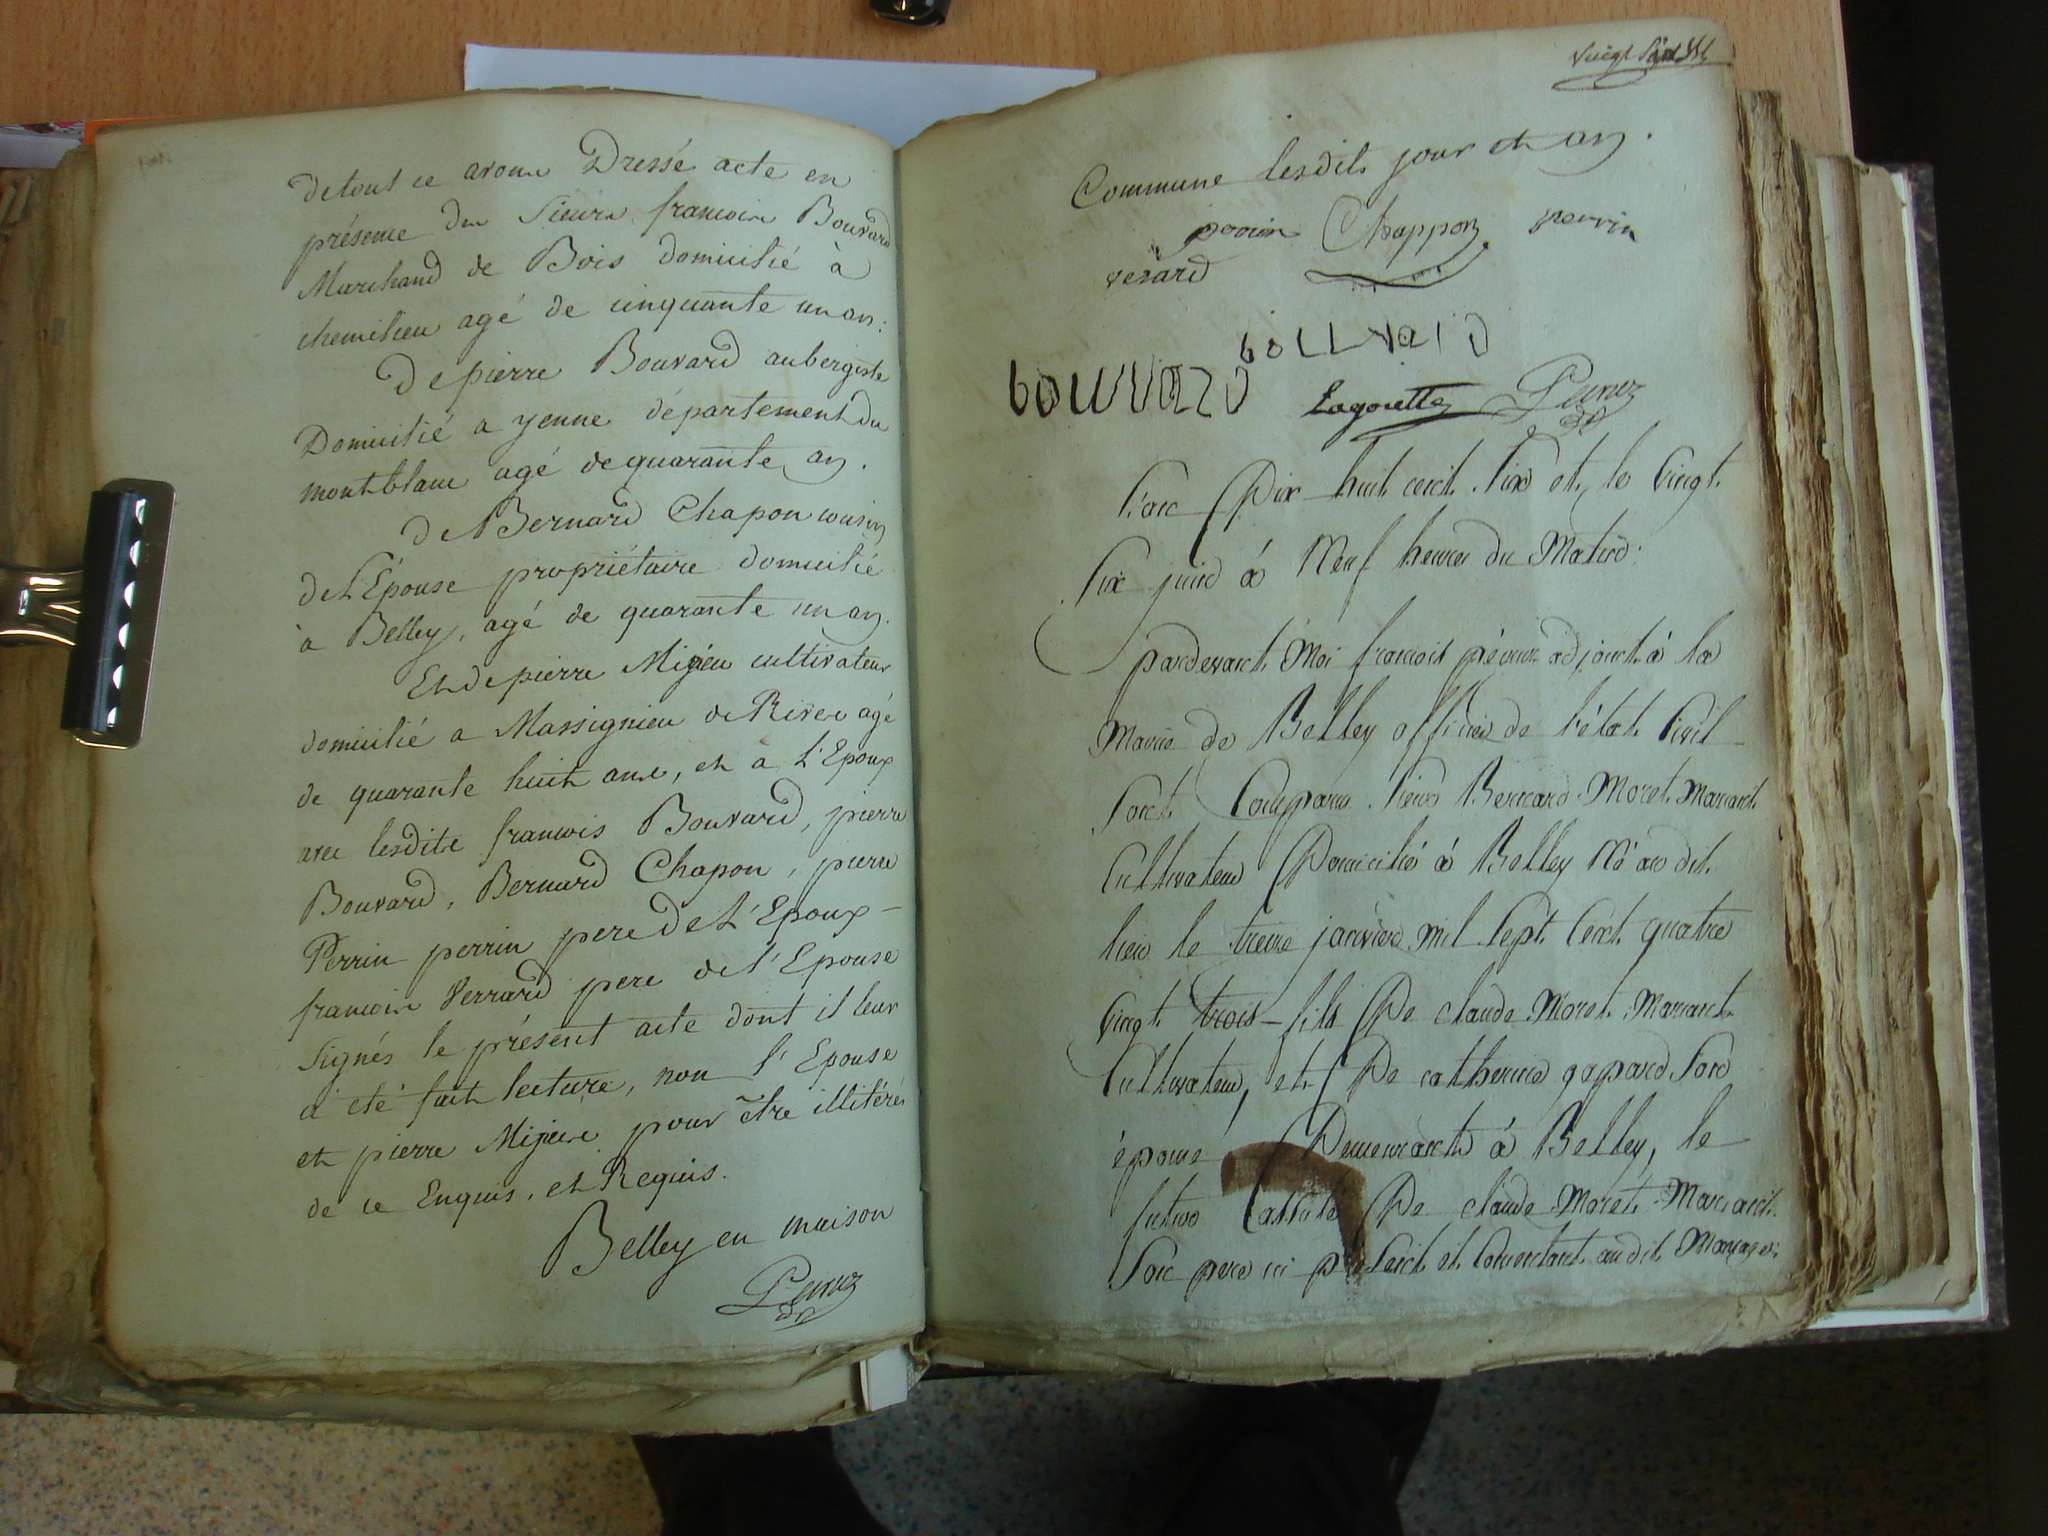 de tout ce avons Dressé acte en
présence des Sieurs francois Bouvard
Marchand de Bois domicilié à
chemilieu agé de cinquante un ans:
De pierre Bouvard aubergiste
Domicilié a yenne département du
montblanc agé de quarante ans.
de Bernard Chapon cousin
de L'Épouse propriétaire domicilié
à Belley, agé de quarante un ans.
Et de pierre Mijieu cultivateur
domicilié a Massignieu de Rives agé
de quarante huit ans, et a l'Epoux
avec lesdits francois Bouvard, pierre
Bouvard, Bernard Chapon, pierre
Perrin perrin pere de L'Epoux
francois Verrard pere de l'Epouse
Signés le présent acte dont il leur
a été fait lecture, non l'Epouse
et pierre Mijieu pour être illitérés
de ce Enquis, et Requis.
Belley en maison
vingt Sept
Commune lesdits jour et an.
perrin Chappon perrin
verard
bouvard
bouvard
Lagoutte
L'an Dix huit cent Six et le Vingt
Six juin à Neuf heures du Matin:
pardevant Moi francois adjoint à la
Mairie de Belley officier de l'état Civil
Sont Comparus Sieur Bernard Moret Manant
Cultivateur Domicilié à Belley Né au dit
lieu le treize janvier mil Sept Cent quatre
Vingt trois fils De claude Moret Manant
Cultivateur, et De catherine gapard Son
épouse Demeurants à Belley, le
futur De claude Moret Manant
Son pere ci présent et Consentant au dit Mariage: